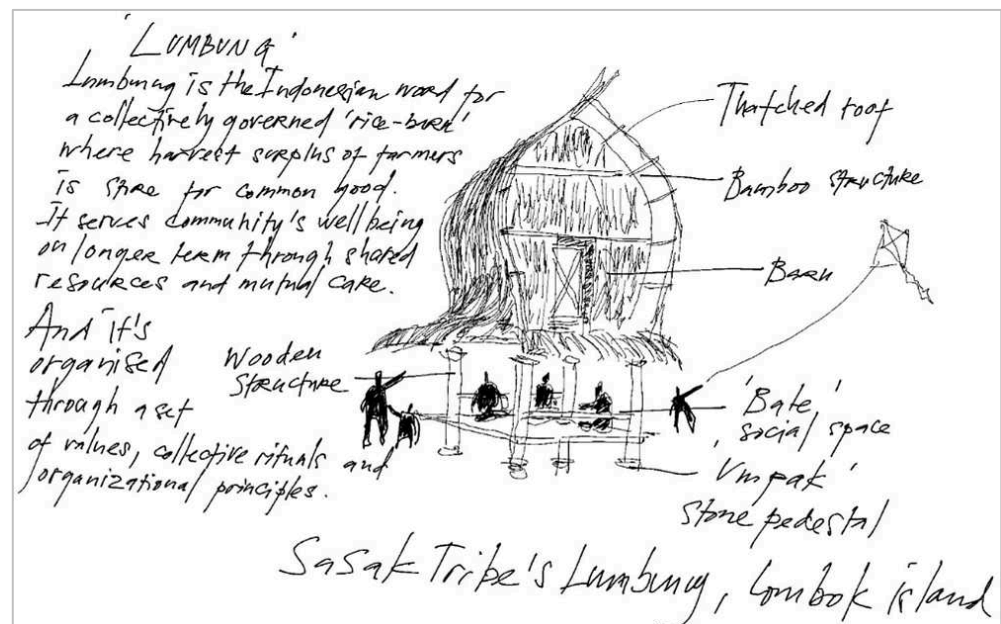 'LUMBUNG'
Lumbung is the Indonesian word for
a collectively governed 'rice-barn'
where harvest surplus of farmers
is store for common good.
It serves community's well being
on longer term through shared
resources and mutual care.
And it's
organised
through a set
of values, collective rituals and
organizational principles.
Thatched roof
Bamboo structure
Barn
Wooden
Structure
'Bale'
social space
'Umpak'
Stone pedestal
Sasak Tribe's Lumbung, Lombok island